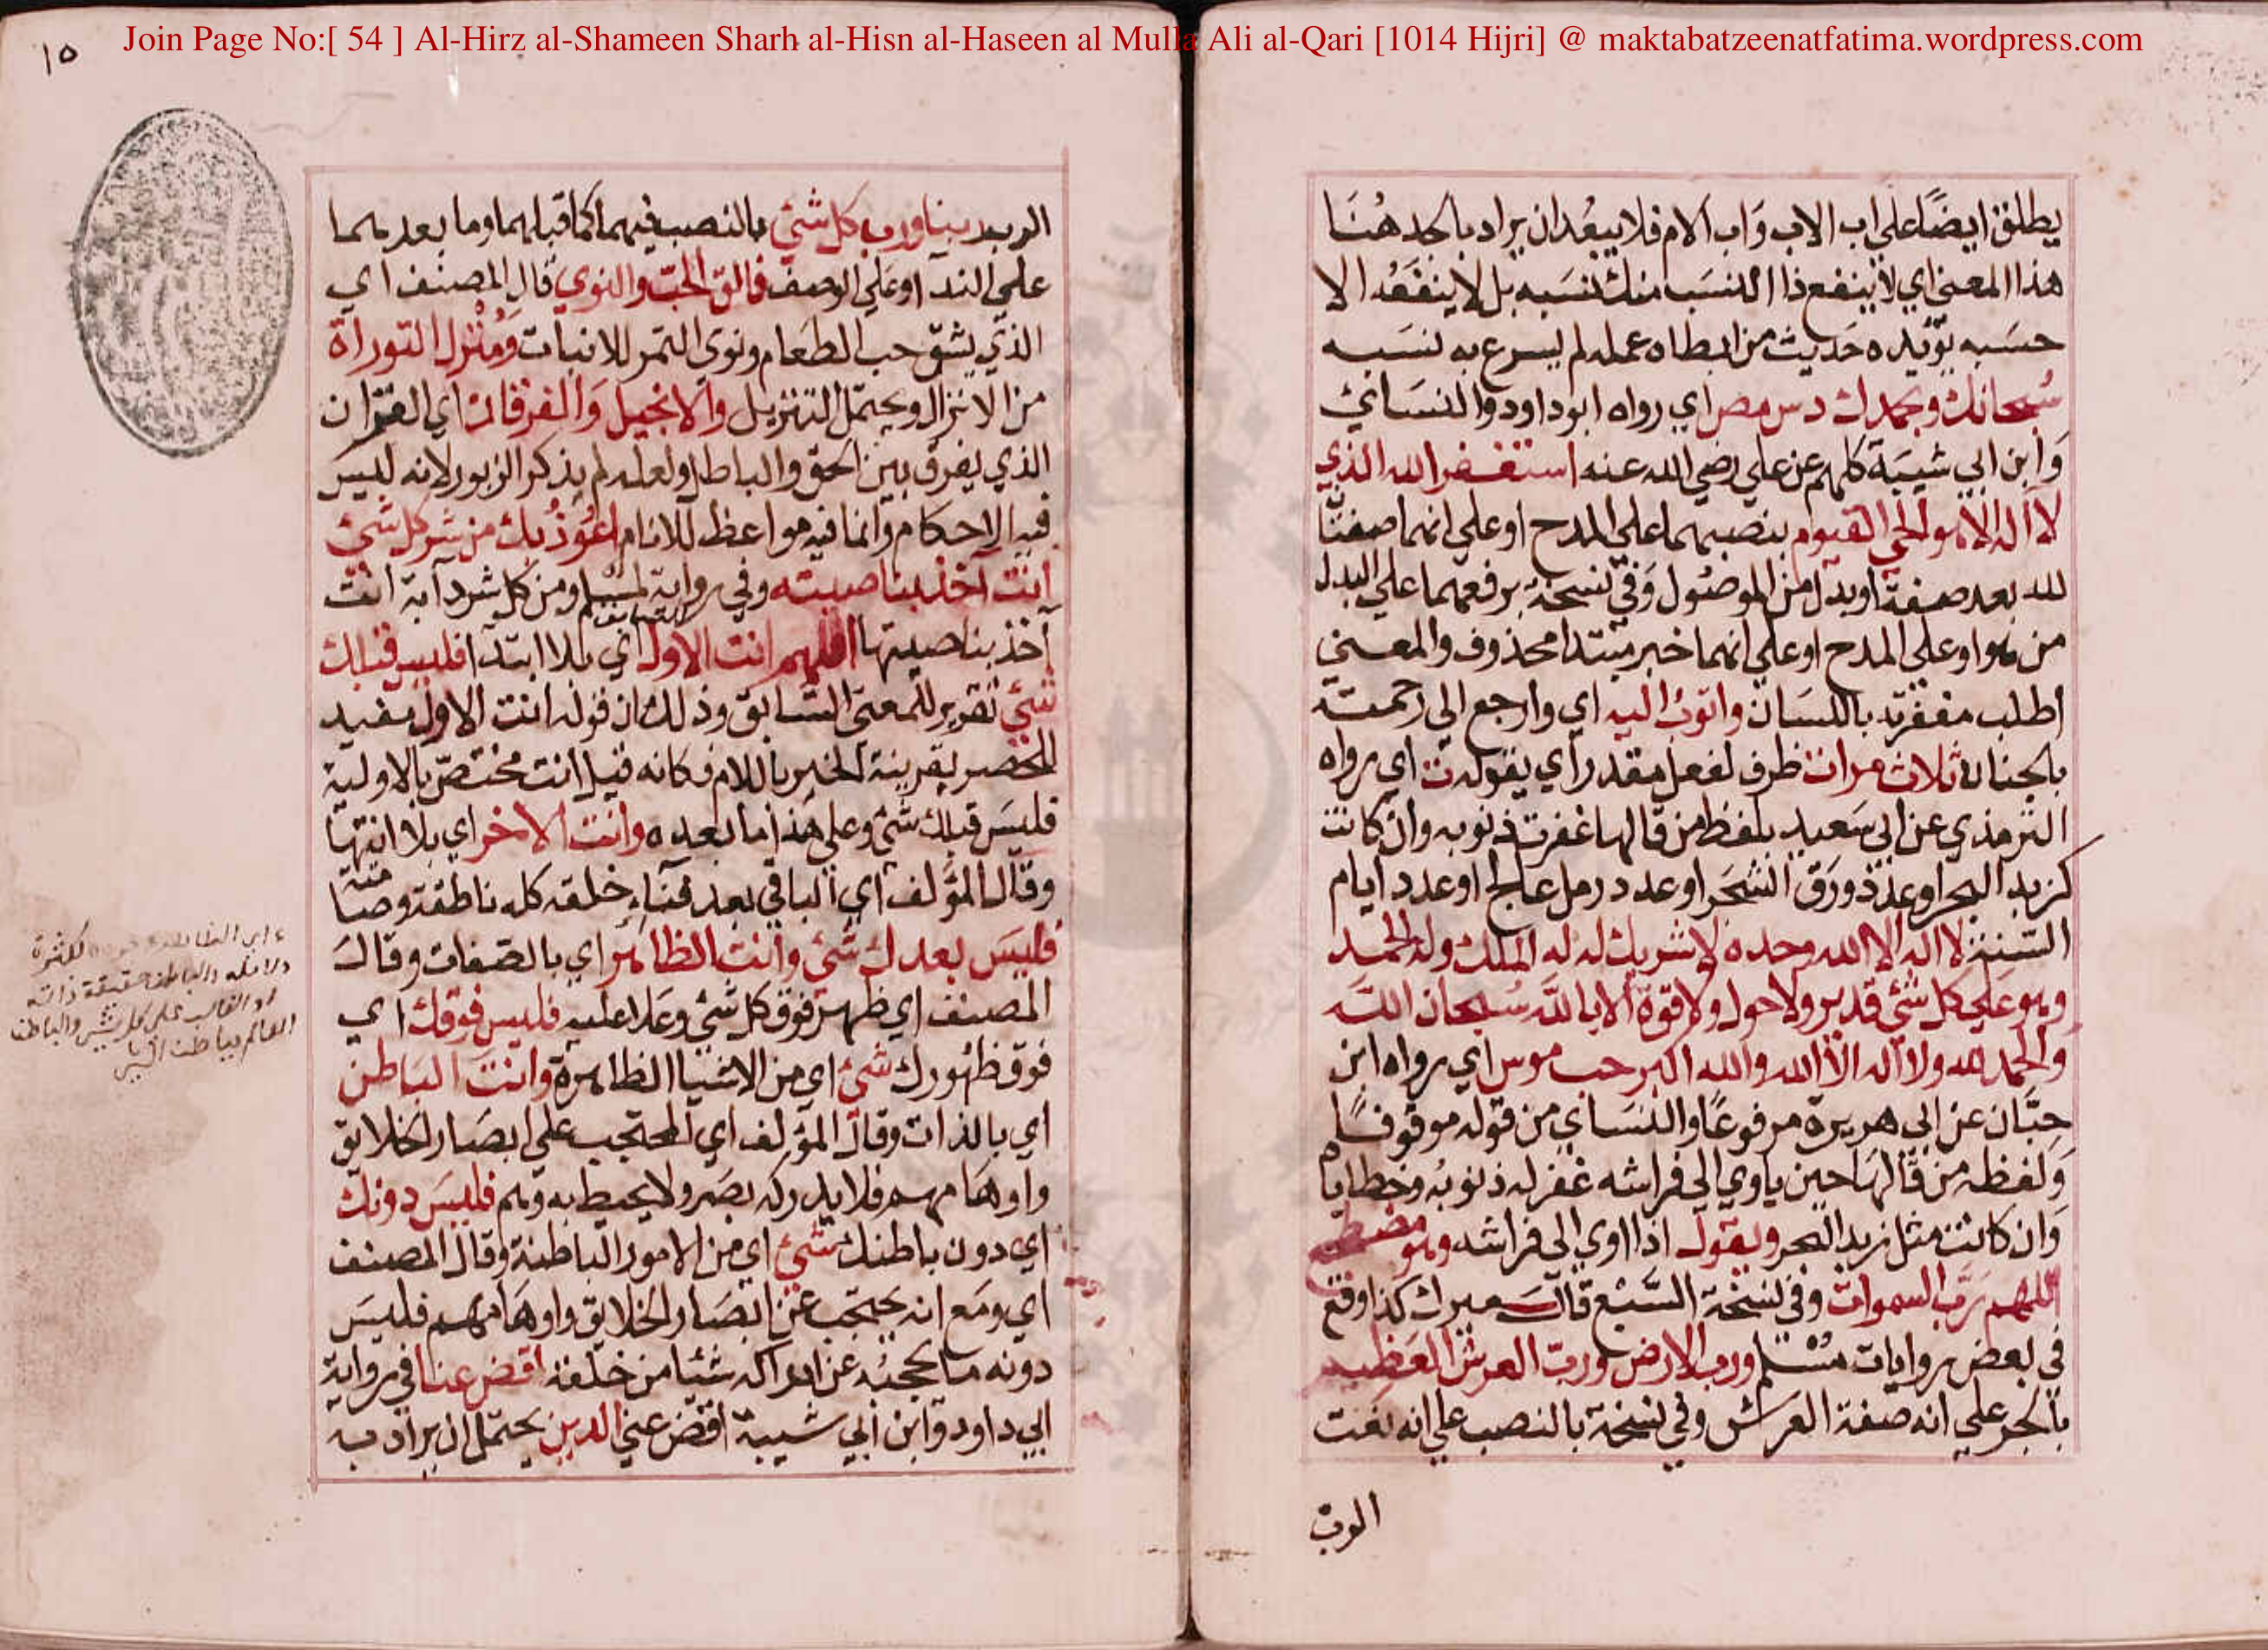 Join Page No:[ 54 ] Al-Hirz al-Shameen Sharh al-Hisn al-Haseen al Mulla Ali al-Qari [1014 Hijri] @ maktabatzeenatfatima.wordpress.com
يطلق ايضًا علي اب الاب وَاب الام فلا يبعُد ان يراد بالجد هُنَا
هذا المعني اي لا ينفع ذا النسَب منك نسَبه بل لا ينفعُه الا
حسَبه يؤيده حَديث من ابطا ه عمله لم يسرع به نسَبه
سُبحانك وبحمدك دس مص اي رواه ابو داود والنسَائي
وَابن ابي شيبَة كلهم عن علي رضي الله عنه استغفر الله الذي
لا اله الا هو الحي القيوم بنصبهما علي المدح او علي انهما صفتَا
لله بعد صفة او بدل من الموصُول وَفي نسخة برفعهما علي البدل
من هو او علي المدح او علي انهما خبر مبتدا محذوف والمعني
اطلب مغفرته باللسَان واتوبُ اليه اي وارجع الي رحمته
بالجنان ثلاث مرات ظرف لفعل مقدر اي يقوله ت اي رواه
الترمذي عن ابي سَعيد بلفظ من قالها غفرت ذنوبه وان كانت
كزبد البحر او عدد ورَق الشجَر او عدد رمل عالج او عدد ايام
السنة لا اله الا الله وحده لا شريك له له الملك وله الحمد
وهو عَلي كل شئ قدير ولا حول ولا قوة الا بالله سُبحان الله
والحمد لله ولا اله الا الله والله اكبر حب موس اي رواه ابن
حِبَّان عن ابي هريرة مرفوعًا والنسَاي من قوله موقوفًا
وَلفظه من قالهَا حين ياوي الي فراشه غفر له ذنوبُه وخطاياه
وَان كانت مثل زبد البحر ويقول اذا اوي الي فراشه وهو مضطجع
اللهم رَبّ السموات وفي نسخة السَّبع قال ميرك كذا وقع
في بعض روايات مُسْلم ورب الارض وربّ العرش العَظيم
بالجر علي انه صفة العَرش وفي نسخة بالنصب علي انه نعت
الرب
١٥
الرب ربنا ورب كل شئ بالنصب فيهما كما قبلهما وما بعدهما
علي الندآ او عَلي الوصف فالق الحَبّ والنوي قال المصنف اي
الذي يشق حب الطعَام ونوي التمر للانبات وَمُنْزل التوراة
من الانزال ويحتمل التنزيل والانجيل وَالفرقان اي القرآن
الذي يفرق بين الحق والباطل ولعله لم يذكر الزبور لانه ليس
فيه الاحكام وانما فيه مواعظ للانام اعُوذُ بك من شر كل شئ
انت آخذ بناصيته وفي رواية لمسلم ومن كل شر دآبة انت
آخذ بناصيتها اللهم انت الاول اي بلا ابتدآ فليس قبلك
شئ تقرير للمعني السَّابق وذلك ان قوله انت الاول مفيد
للحصر بقرينة الخبر باللام فكانه قيل انت مختصّ بالاولية
فليسَ قبلك شئ وعلي هذا ما بعده وانت الاخر اي بلا انتهَا
وقال المؤلف اي الباقي بعد فنآء خلقه كله ناطقة وصَامته
فليسَ بعدك شئ وانت الظاهر اي بالصفات وقال
المصنف اي ظهر فوق كل شئ وعَلا عليه فليس فوقك اي
فوق ظهُورك شئ اي من الاشيا الظاهرة وانتَ الباطن
اي بالذات وقال المؤلف اي المحتجب علي ابصَار الخلايق
واوهَامهم فلا يدركه بصَر ولا يحيط به وهم فليسَ دونك
اي دون باطنك شئ اي من الامور الباطنة وقال المصنف
اي ومَع انه يحتجب عن ابصَار الخلايق واوهَامهم فليسَ
دونه ما يحجبُه عن ادراكه شئيا من خلقه اقض عنا في رواية
ابي داود وابن ابي شيبة اقض عني الدين يحتمل ان يراد به
لكثرة
دلائله والباطن حقيقة ذاته
او الغالب علي كل شئ والباطن
العالم بباطن